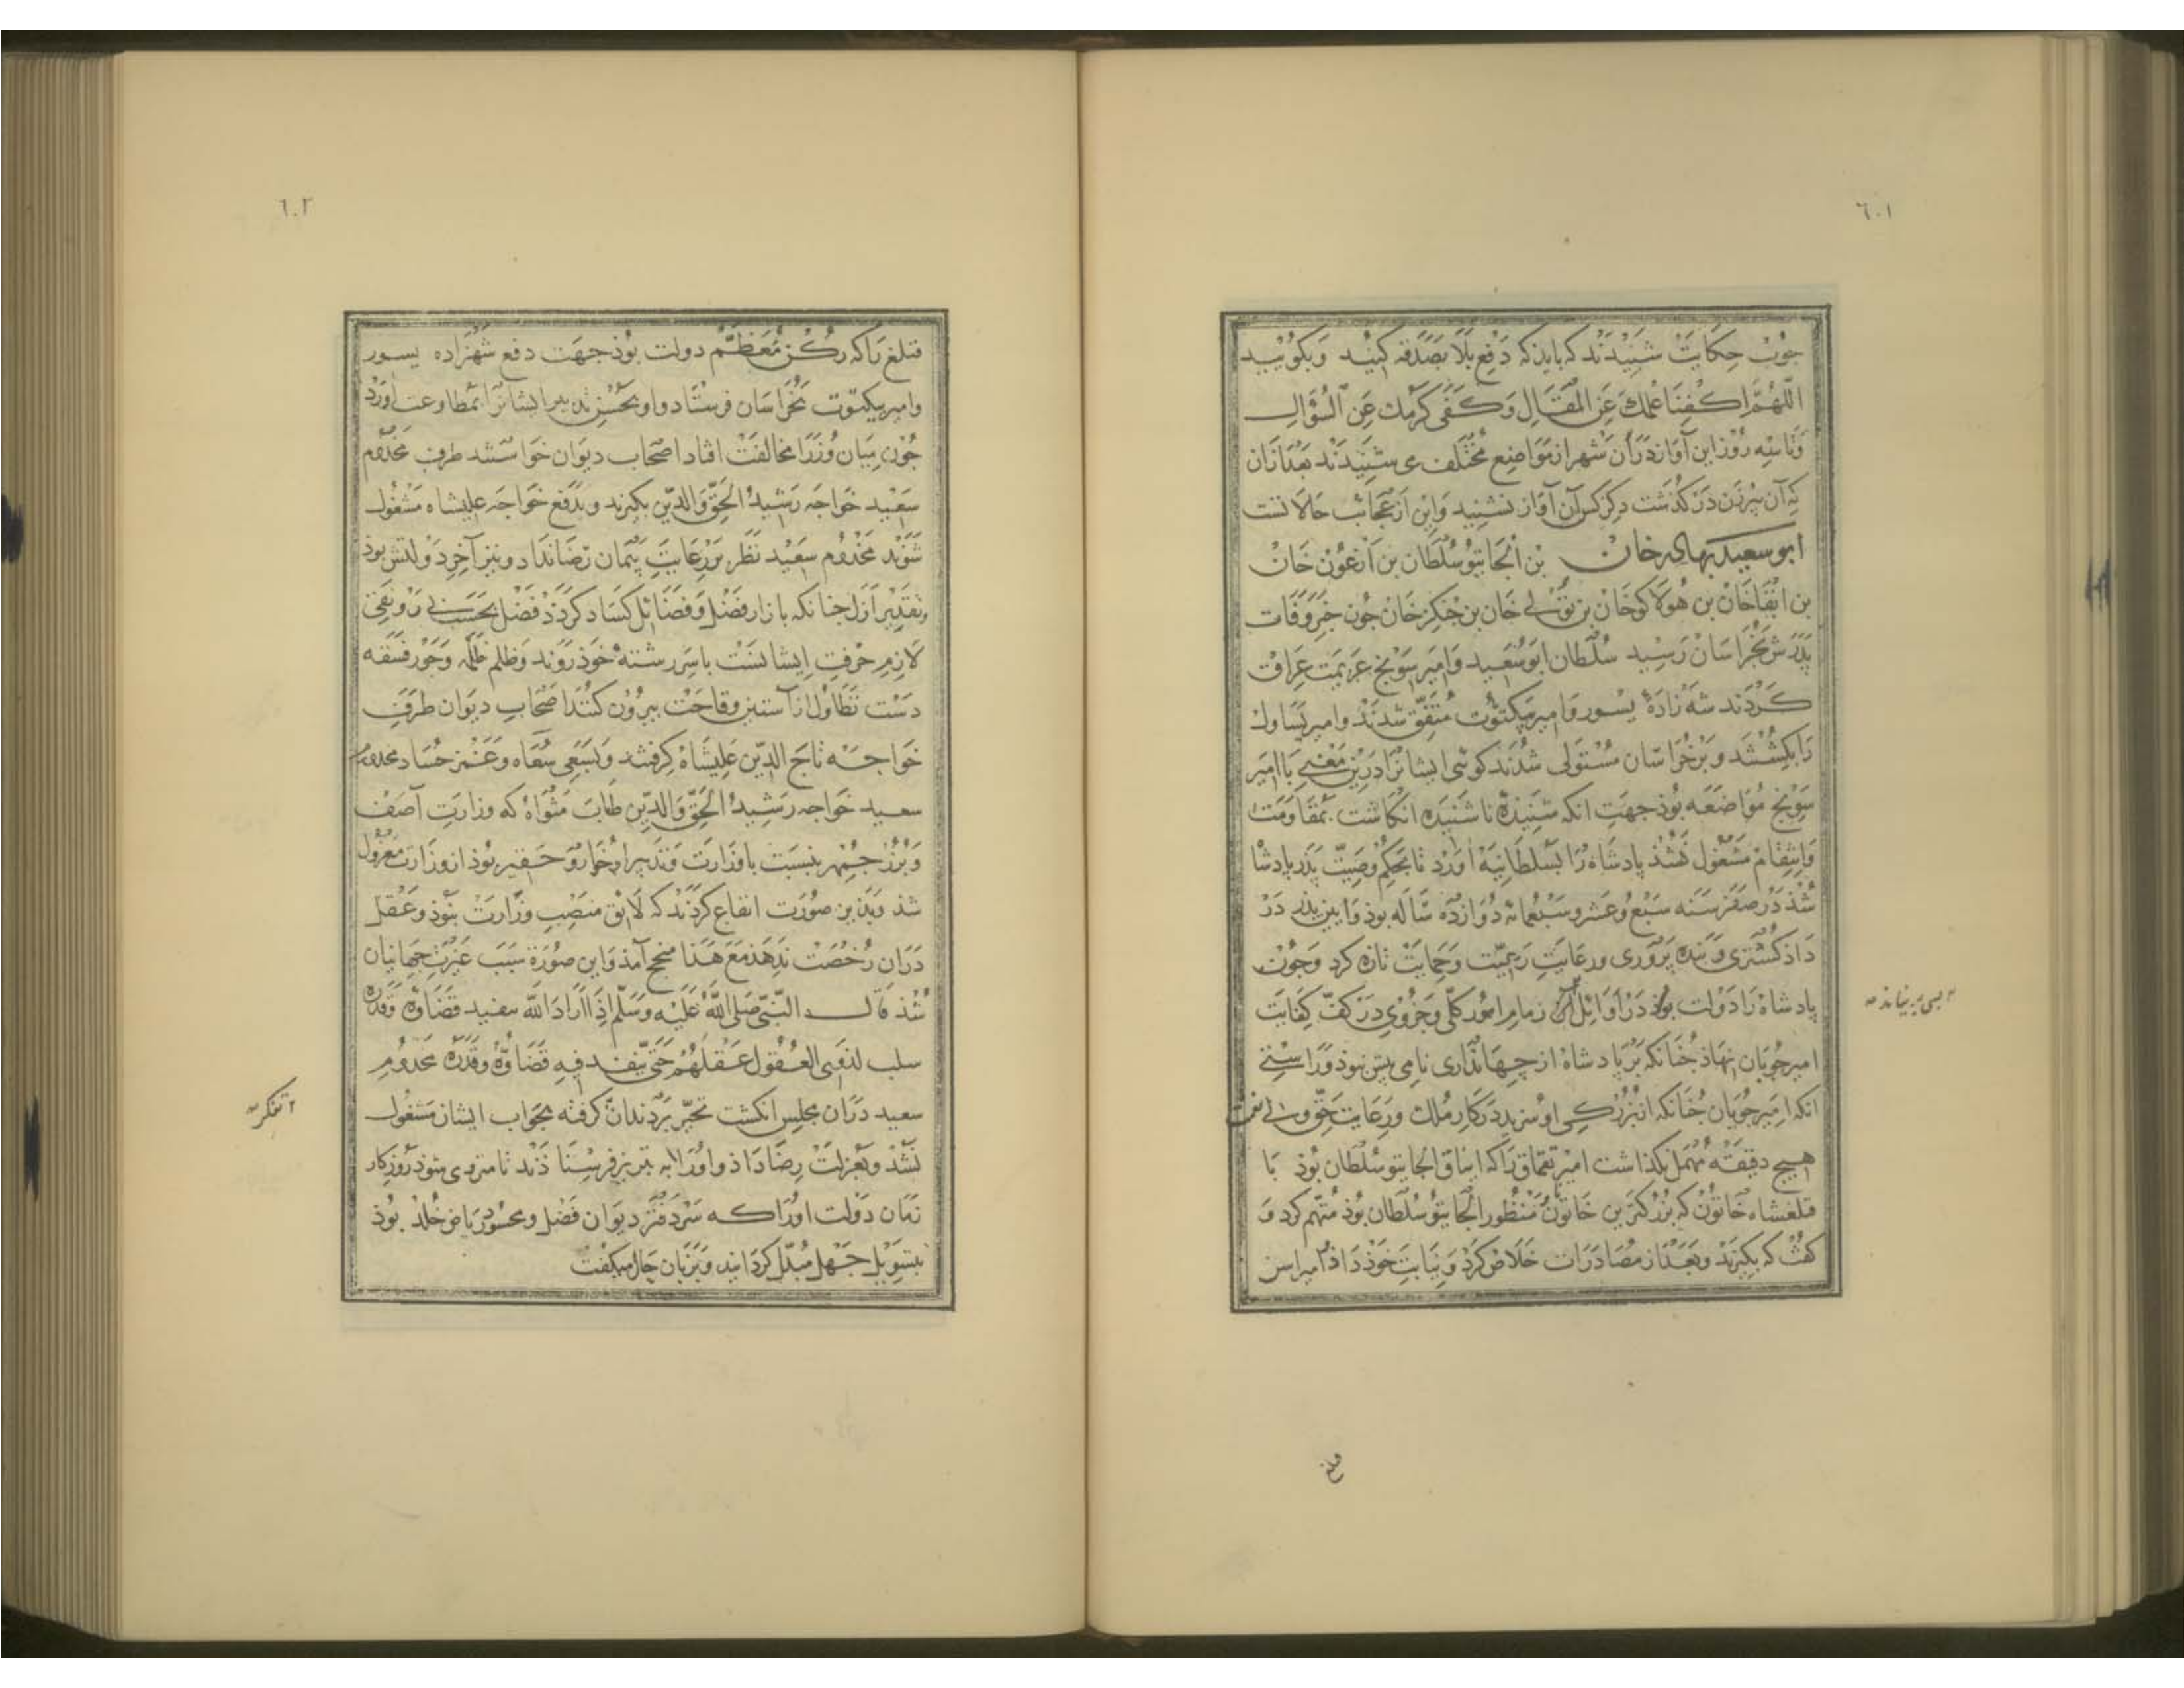 ٦٠١
چون حکایت شنیدند که باید که دفع بلا بصدقه کنید و بگویید
اللهم اکفنا علمك عن المقال و کفی کرمك عن السؤال
و تا سه روز این آواز در آن شهر از مواضع مختلف می شنیدند بعد از آن
که آن پیرزن در گذشت دگر کس آن آواز نشنید و این از عجائب حالاتست
ابوسعید بهادر خان بن الجایتو سلطان بن ارغون خان
بن ابقا خان بن هولاکو خان بن تولی خان بن جنکز خان چون خبر وفات
پدرش بخراسان رسید سلطان ابوسعید و امیر سونج عزیمت عراق
کردند شه زاده یسور و امیر بیکتوت متفق شدند و امیر یساول
را بکشتند و بر خراسان مستولی شدند گوئی ایشانرا درین معنی با امیر
سونج مواضعه بوذ جهت آنکه شنیده ناشنیده انکاشت بمقاومت
و انتقام مشغول نشذ پادشاه را بسلطانیه آورد تا بحکم وصیت پدر پادشا
شذ در صفر سنه سبع و عشر و سبعمائة دوازده ساله بوذ و آیین پدر در
داذ کستری و بنده پروری و رعایت رعیت و حمایت تازه کرد و چون
پادشاه را دولت بوذ در اوائل زمام امور کلی و جزوی در کف کفایت
امیر چوبان نهاذ چنانکه بر پادشاه از جهانداری نامی بیش نبوذ و راستی
آنکه امیر چوبان چنانکه از بزرکی او سزید در کار ملك و رعایت حق ولی نعمت
هیچ دقیقه مهمل نکذاشت امیر تقماق را که ایناق الجایتو سلطان بوذ با
قتلغشاه خاتون که بزرکترین خاتون منظور الجایتو سلطان بوذ متهم کرد و
کفت که بکیرند و بعد از مصادرات خلاص کرد و نیابت خوذ داذ امیر ایسن
قتلغ
٦٠٢
قتلغ را که رکن معظم دولت بوذ جهت دفع شهزاده یسور
و امیر بیکتوت بخراسان فرستاد و او بحسن تدبیر ایشانرا بمطاوعت آورد
چون میان وزرا مخالفت افتاد اصحاب دیوان خواستند طرف مخدوم
سعید خواجه رشید الحق و الدین بکیرند و بدفع خواجه علیشاه مشغول
شوند مخدوم سعید نظر بر رعایت پیمان رضا نداد و نیز آخر دولتش بوذ
و تقدیر ازل چنانکه بازار فضل و فضائل کساد کردد فضل بحسب بی رونقی
لازم حرفت ایشانست باسر رشتۀ خوذ روند و ظلم ظلمه و جور فسقه
دست تطاول از آستین وقاحت بیرون کنند اصحاب دیوان طرف
خواجه تاج الدین علیشاه کرفتند و بسعی سعاه و غمز حساد مخدوم
سعید خواجه رشید الحق و الدین طاب مثواه که وزارت آصف
و بزرجمهر بنسبت با وزارت و تدبیر او خوار و حقیر بوذ از وزارت معزول
شذ و بدین صورت اتفاع کردند که لائق منصب وزارت نبوذ و عقل
در آن رخصت ندهذ مع هذا منجح آمذ و این صورة سبب عبرت جهانیان
شذ قال النبی صلی الله علیه و سلم اذا اراد الله سفید قضاؤه و قدره
سلب لذوی العقول عقلهم حتی ینفد فیه قضاؤه و قدره مخدوم
سعید در آن مجلس انکشت تحیر بر دندان کرفته بجواب ایشان مشغول
نشذ و بعزلت رضا داذ و او را به تبریز فرستاذند تا منزوی شوذ روزکار
زمان دولت او را که سردفتر دیوان فضل و محسود ریاض خلد بوذ
بتسویل جهل مبدل کردانید و بزبان حال میکفت
٢ تفکر